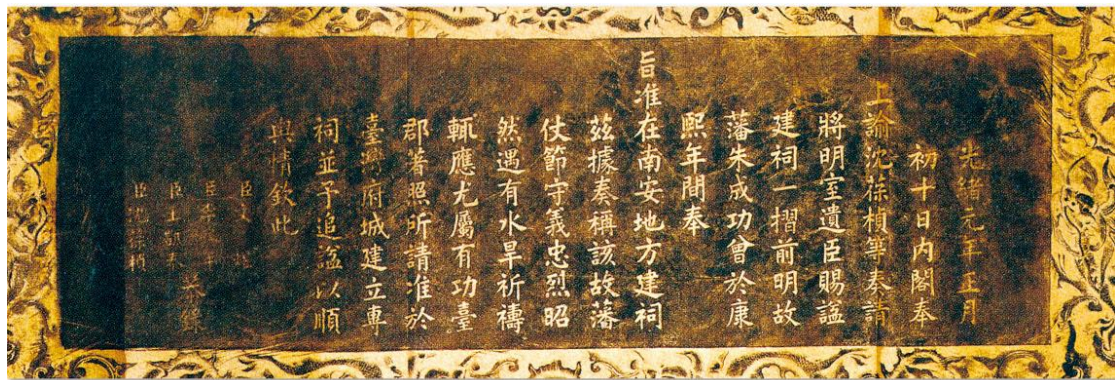 光緒元年正月
初十日內閣奉
上諭沈葆楨等奏請
將明室遺臣賜謚
建祠一摺前明故
藩朱成功曾於康
熙年間奉
旨准在南安地方建祠
茲據奏稱該故藩
仗節守義忠烈昭
然遇有水旱祈禱
輒應尤屬有功臺
郡著照所請准於
臺灣府城建立專
祠並予追謚以順
輿情欽此
臣文
臣李
臣王凱泰
臣沈葆楨
恭錄